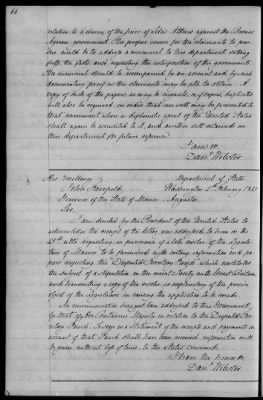 relative to a claim of the of Silas Atkins against the Buenos
Ayrean government. The proper course for the claimants to pursue
would be to address a memorial to this department setting
forth the facts and requesting the interposition of the government.
The memorial should be accompanied by an account and by such
documentary proof as the claimants may be able to obtain. A
copy of such of the papers as may be requisite, in sufficient duplicate
will also be required, in order that one set may be presented to
that government when a diplomatic agent of the United States
shall again be accredited to it, and another set retained in
this department for future reference.
I am &c
Danl. Webster.
His Excellency
Department of State
Fairfield,
Washington, February 1842
Governor of the State of Maine. Augusta.
Sir,
I am directed by the President of the United States to
acknowledge the receipt of the letter you addressed to him on the
25th ulto. requesting, in pursuance of a late order of the Legislature
of Maine "to be furnished with certain information and papers
respecting the Disputed Territory Fund which constitutes
the subject of a stipulation in the recent treaty with Great Britain
and transmitting a copy of the order, as explanatory of the precise
object of the Legislature in causing the application to be made.
No communication has yet been addressed to this Government
by that of Her Britannic Majesty in relation to the Disputed Territory
Fund. So soon as a statement of the receipts and payments on
account of that Fund shall have been received, information will
be given, without loss of time, to the States concerned.
I have the honor &c
Danl. Webster.